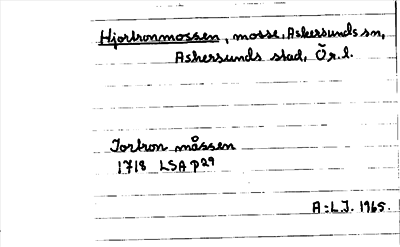 Hjortronmossen, mosse, Askersunds sn,
Askersunds stad, Ör. l.
Jortron måssen
1718 LSA p 29
A:L.J. 1965.